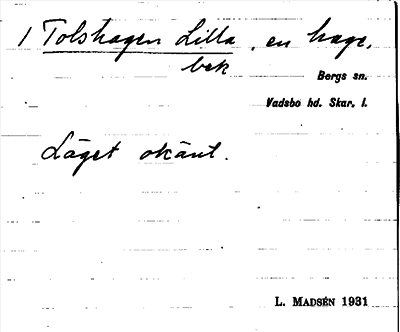 1 Tolshagen Lilla, en hage,
bek
Bergs sn.
Vadsbo hd. Skar. l.
Läget okänt.
L. MADSÉN 1931